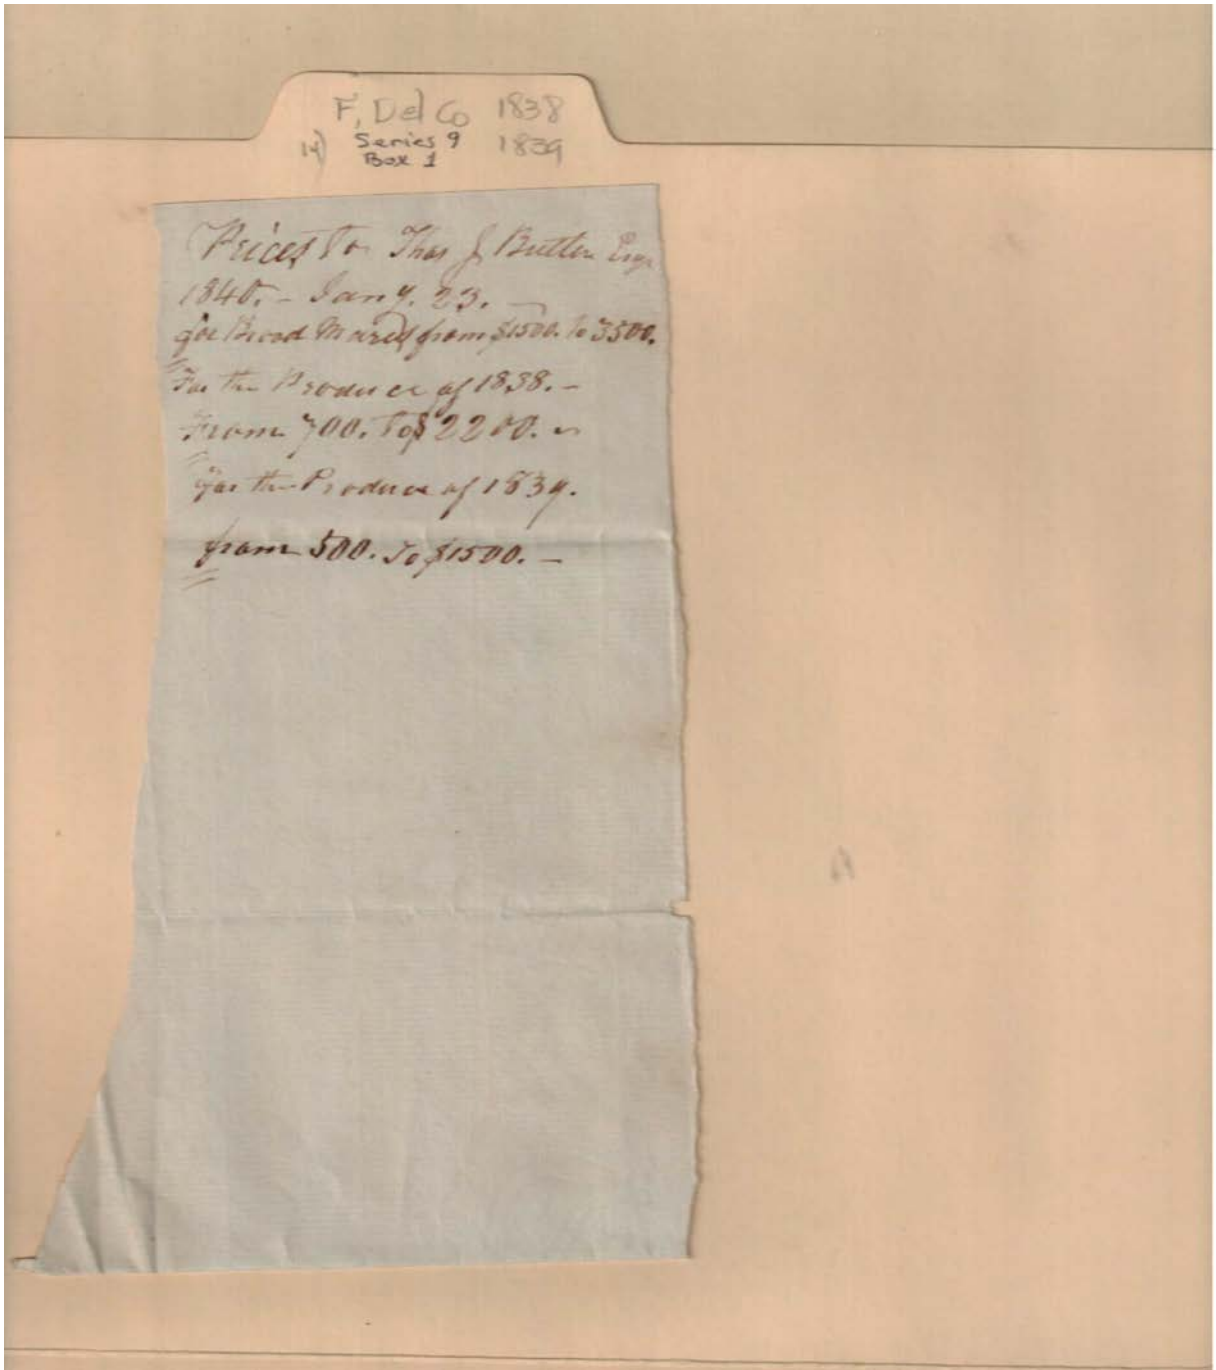 F, Del Co 1838
14) Series 9 1839
Box 1
Prices To Thos J Butler Esqr
1840. - Jany. 23. -
for Brood Mares from $1500. to 3500.
For the Produce of 1838. -
From 700. To $2200. -
for the Produce of 1839.
from 500. To $1500. -